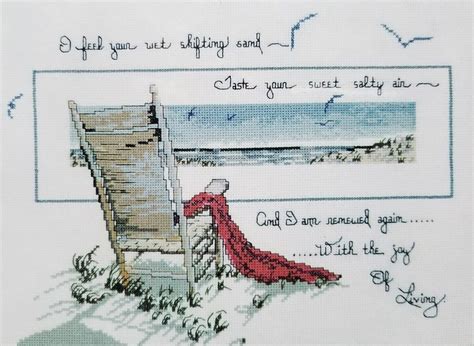 I feel your wet shifting sand ~
Taste your sweet salty air ~
And I am renewed again.....
.....With the joy
Of
Living.